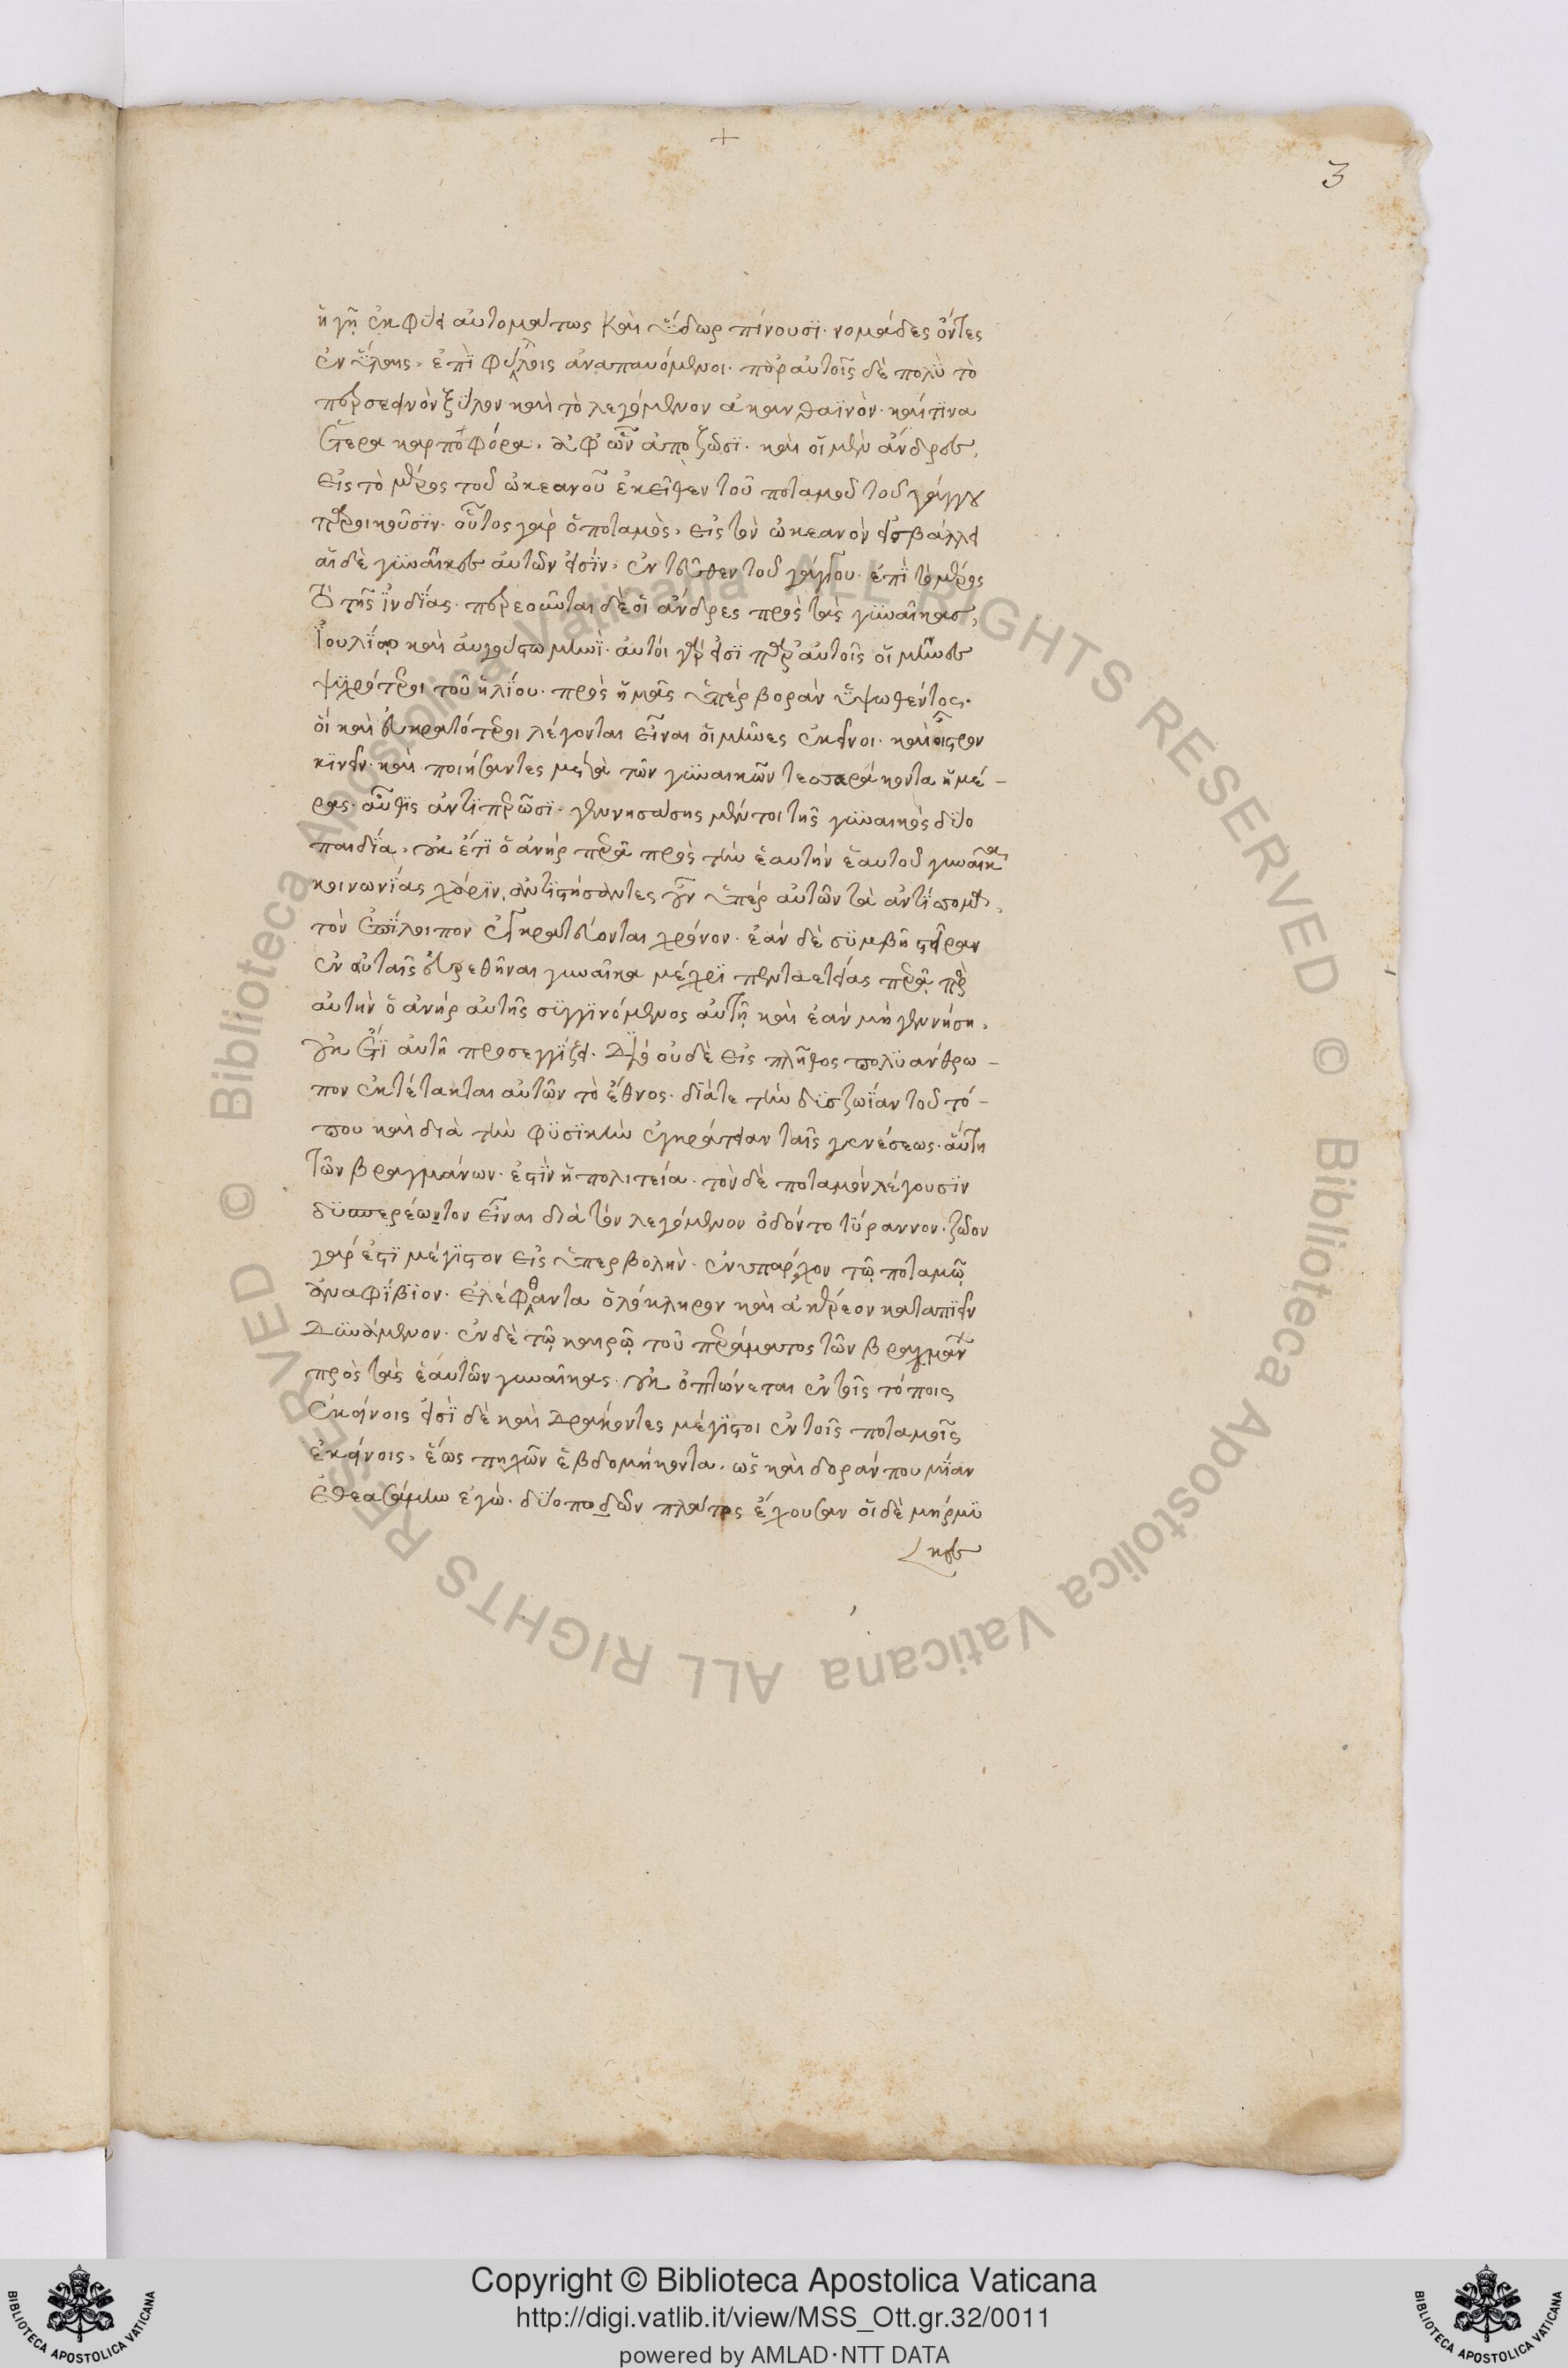 3
ἡ γῆ ἐκφύει αὐτομάτως καὶ ὕδωρ πίνουσι. νομάδες ὄντες
ἐν ὕλαις, ἐπὶ φύλλοις ἀναπαυόμενοι. παρ αὐτοῖς δὲ πολὺ τὸ
περσεινὸν ξύλον καὶ τὸ λεγόμενον ἀκανθαϊνὸν. καί τινα
ἕτερα καρποφόρα, ἀφ ὧν ἀποζῶσι. καὶ οἱ μὲν ἄνδρες,
εἰς τὸ μέρος τοῦ ὠκεανοῦ ἐκεῖθεν τοῦ ποταμοῦ τοῦ γάγγου
παροικοῦσιν. οὗτος γὰρ ὁ ποταμὸς, εἰς τὸν ὠκεανὸν εἰσβάλλει
αἱ δὲ γυναῖκες αὐτῶν εἰσίν, ἐντεῦθεν τοῦ γάγγου. ἐπὶ τὸ μέρος
τὸ τῆς ἰνδίας. περεοῦνται δὲ οἱ ἄνδρες πρὸς τὰς γυναῖκας,
ἰουλίῳ καὶ αὐγούστω μηνί. αὐτοί γάρ εἰσι παρ αὐτοῖς οἱ μῆνες
ψυχρότεροι τοῦ ἡλίου. πρὸς ἡμᾶς ὑπέρ βορὰν ὑψωθέντος.
οἱ καὶ εὐκρατότεροι λέγονται εἶναι οἱ μῆνες ἐκεῖνοι. καὶ οἶστρον
κινεῖν. καὶ ποιήσαντες μετὰ τῶν γυναικῶν τεσσαράκοντα ἡμέ-
ρας. αὖθις ἀντιπερῶσι. γεννησάσης μέντοι τῆς γυναικὸς δύο
παιδία, οὐκ ἔτι ὁ ἀνὴρ περᾶ πρὸς τὴν ἑαυτὴν ἑαυτοῦ γυναῖκα
κοινωνίας χάριν, ἀντιστήσαντες οὖν ὑπέρ αὐτῶν τὰ ἀντίπομα,
τὸν ἐπίλοιπον ἐγκρατεύονται χρόνον. ἐὰν δὲ συμβῆ στεῖραν
ἐν αὐταῖς εὑρεθῆναι γυναῖκα μέχρι πενταετίας περᾶ πρὸς
αὐτὴν ὁ ἀνὴρ αὐτῆς συγγινόμενος αὐτῆ καὶ ἐὰν μὴ γεννήση,
οὐκ ἔτι αὐτῆ προσεγγίζει. διὸ οὐδὲ εἰς πλῆθος πολυάνθρω-
πον ἐκτέτακται αὐτῶν τὸ ἔθνος. διά τε τὴν δυσζωΐαν τοῦ τό-
που καὶ διὰ τὴν φυσικὴν ἐγκράτειαν ταῖς γενέσεως. αὕτη
τῶν βραγμάνων. ἐστὶν ἡ πολιτεία. τὸν δὲ ποταμὸν λέγουσιν
δυσπερέωντον εἶναι διὰ τὸν λεγόμενον ὀδοντοτύραννον. ζῶον
γάρ ἐστι μέγιστον εἰς ὑπερβολὴν. ἐνυπάρχον τῷ ποταμῷ
ἀναφίβιον. ἐλέφαντα ὁλόκληρον καὶ ἀκέρεον καταπιεῖν
δυνάμενον. ἐν δὲ τῷ καιρῷ τοῦ περάματος τῶν βραγμάνων
πρὸς τὰς ἑαυτῶν γυναῖκας. οὐκ ὀπτώνεται ἐν τοῖς τόποις
ἐκείνοις εἰσὶ δὲ καὶ δράκοντες μέγιστοι ἐν τοῖς ποταμοῖς
ἐκείνοις, ἕως πηχῶν ἑβδομήκοντα, ὡς καὶ δορὰν που μίαν
ἐθεασάμην ἐγὼ. δύο ποδῶν πλάτος ἔχουσαν οἱ δὲ μηρμυ
κες
© Biblioteca Apostolica Vaticana ALL RIGHTS RESERVED © Biblioteca Apostolica Vaticana ALL RIGHTS RESERVED
Copyright © Biblioteca Apostolica Vaticana
http://digi.vatlib.it/view/MSS_Ott.gr.32/0011
powered by AMLAD·NTT DATA
BIBLIOTECA APOSTOLICA VATICANA
BIBLIOTECA APOSTOLICA VATICANA